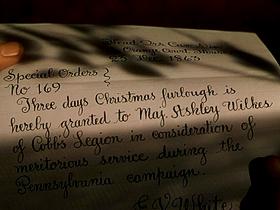 Head Qrs
Orange Court House
25 Dec. 1863
Special Orders }
No 169
Three days Christmas furlough is
hereby granted to Maj. Ashley Wilkes
of Cobb's Legion in consideration of
meritorious service during the
Pennsylvania campaign.